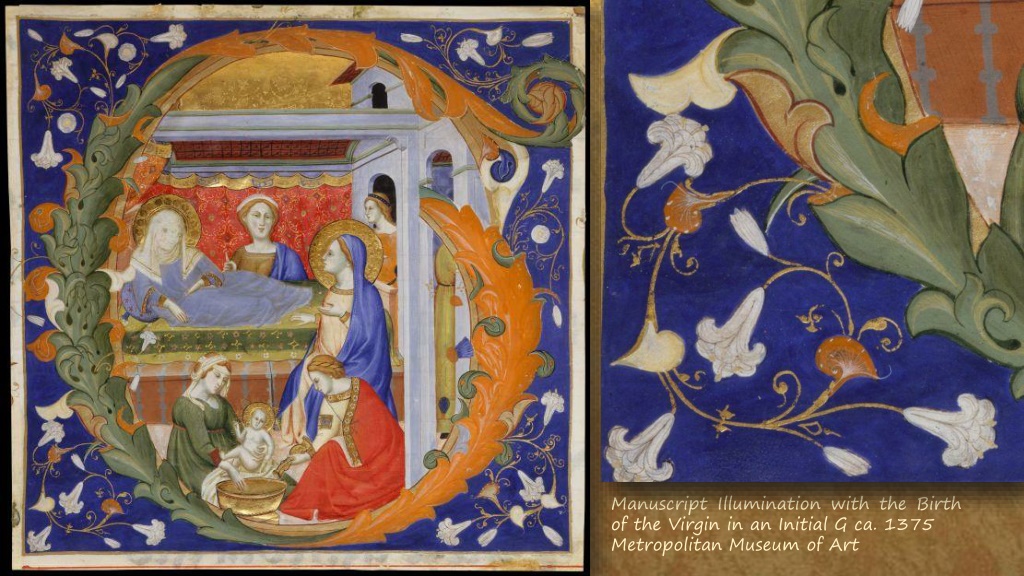 Manuscript Illumination with the Birth
of the Virgin in an Initial G ca. 1375
Metropolitan Museum of Art